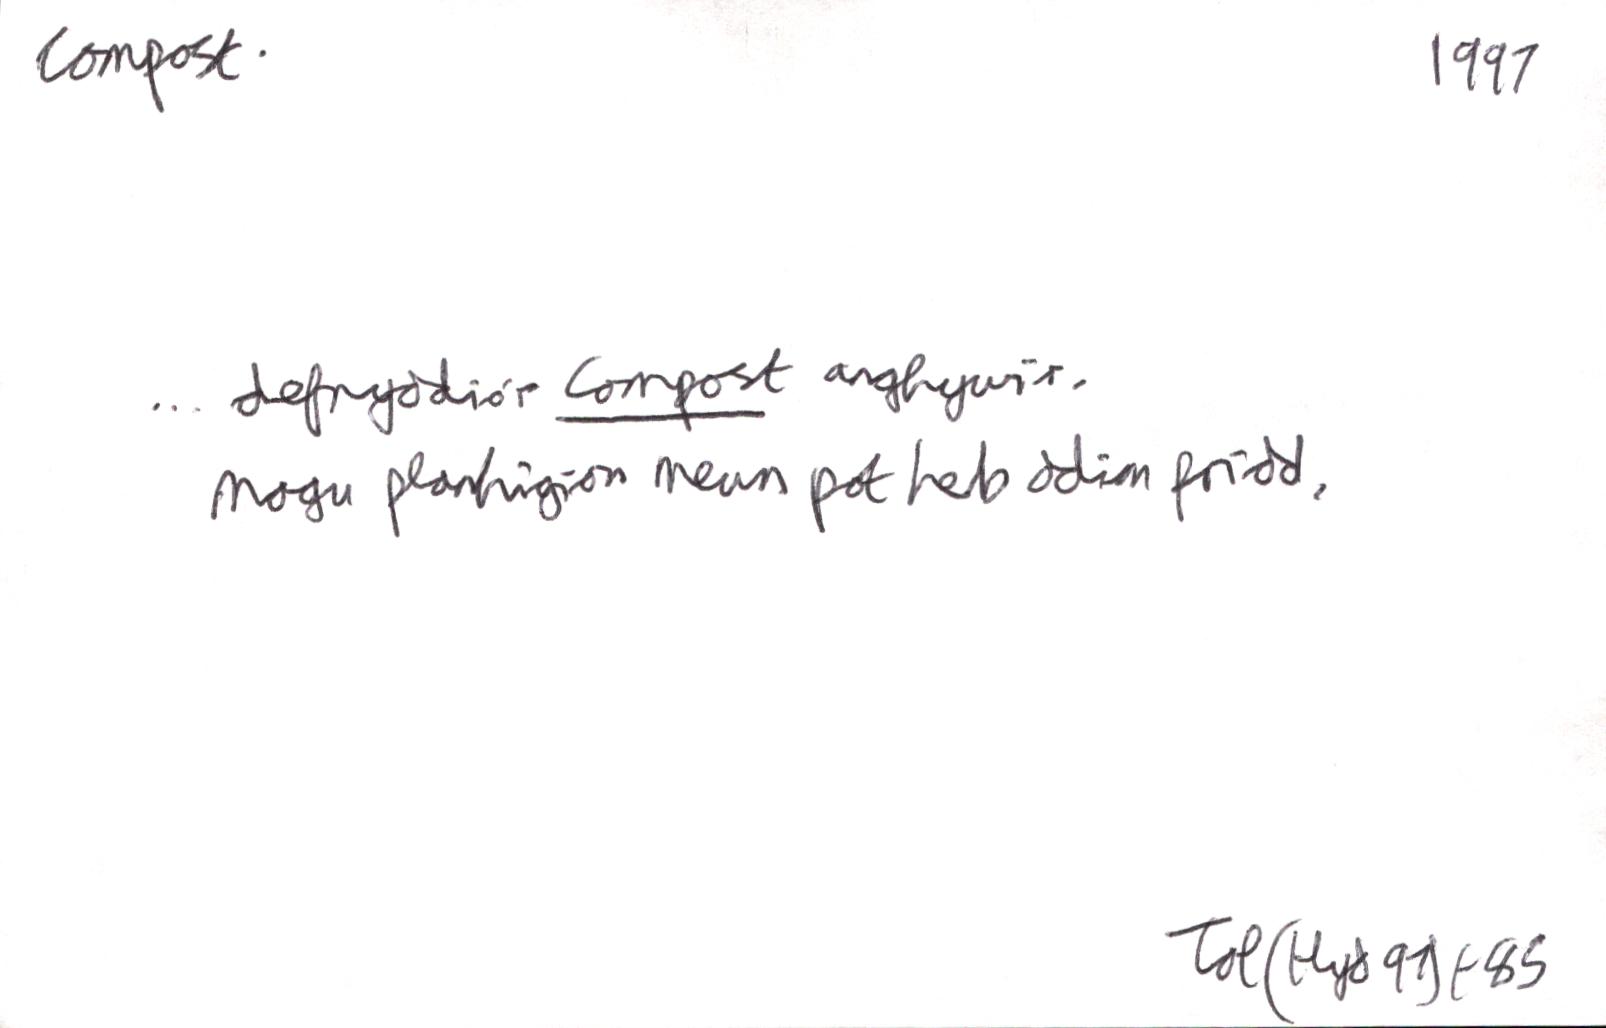 Compost. 1997
... defnyddio'r Compost anghywir.
Magu planhigion mewn pot heb ddim pridd,
Tol (Hyd 97) t-85